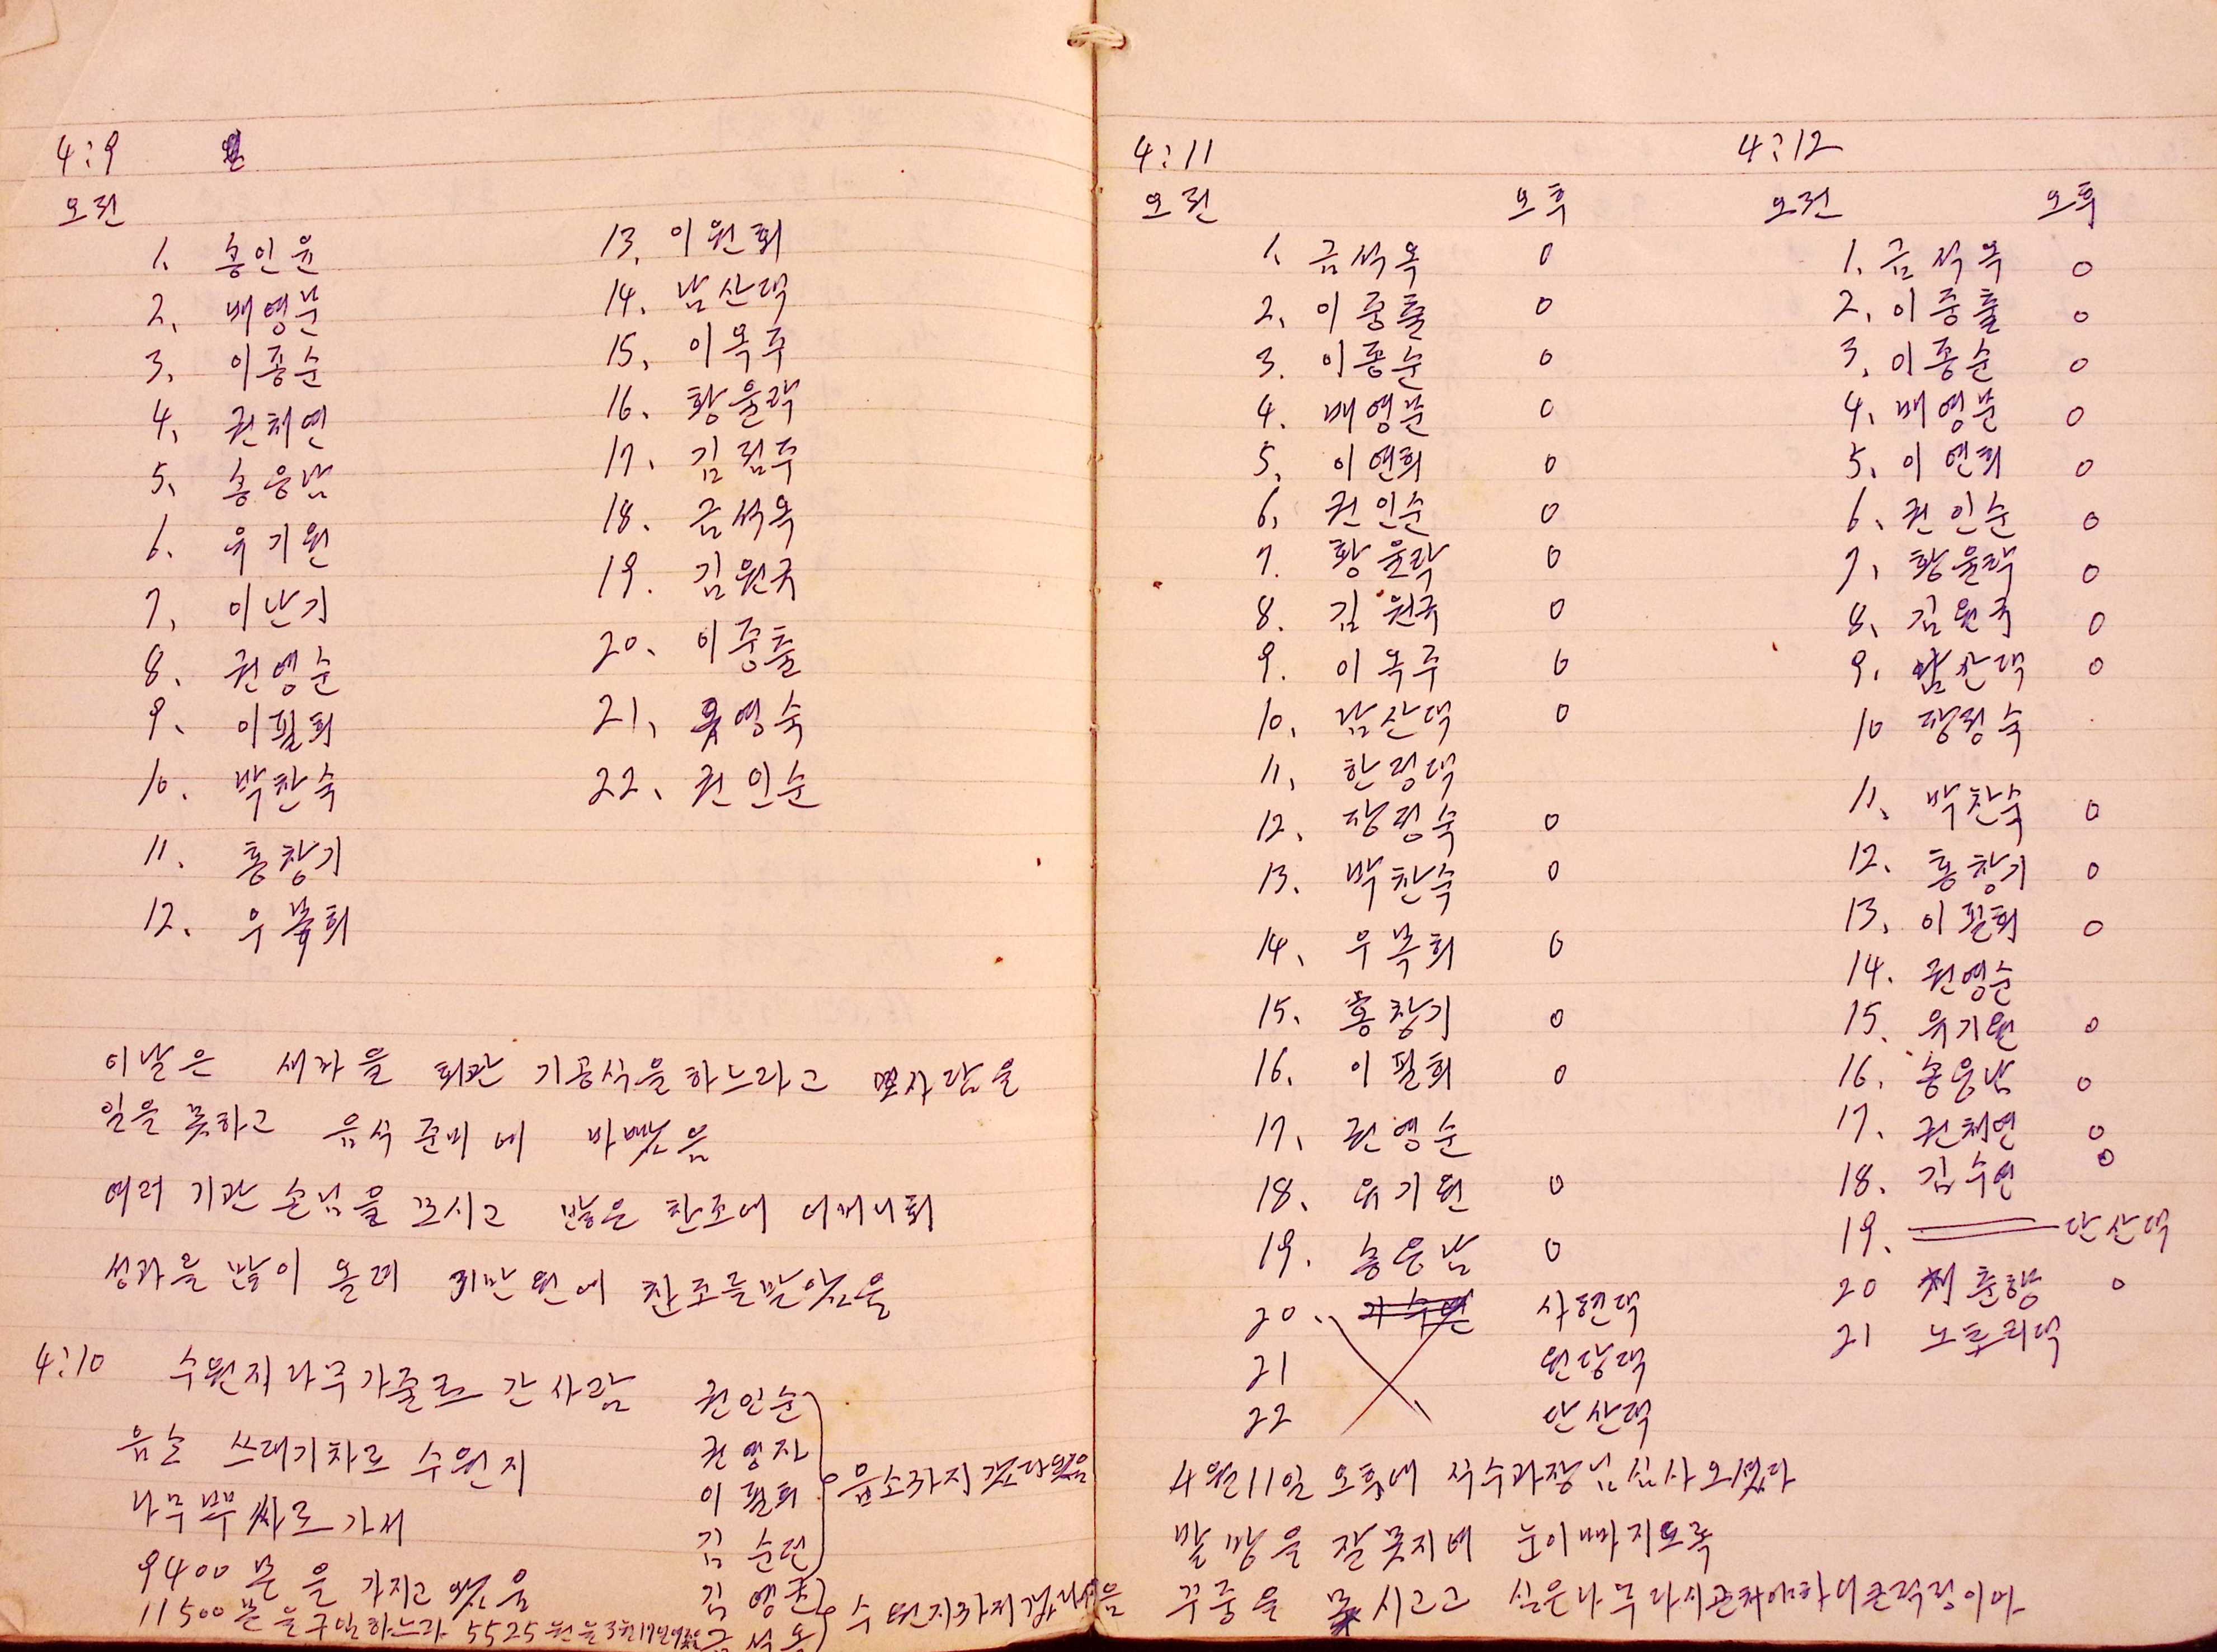 4:9
오전
1. 송인윤
2. 배영분
3. 이종순
4. 권채연
5. 송응남
6. 유기원
7. 이난기
8. 권영순
9. 이필희
10. 박찬숙
11. 홍창기
12. 우복희
13. 이원희
14. 남산댁
15. 이옥주
16. 황윤락
17. 김점주
18. 금석옥
19. 김원국
20. 이중출
21. 영숙
22. 권인순
이날은 새마을 회관 기공식을하느라고 모사람을
일을 못하고 음식 준비에 바빴음
여러 기관 손님을 모시고 많은 찬조에 어머니회
성과를 많이 올려 만원에 찬조를받았음
4:10 수원지나무가줄르 간사람
음소 쓰레기차로 수원지
나무 싸로가서
9400본을 가지고 왔음
11500본을구입하느라 5525원을3월17일
권인순
권영자
이필희
김순전
음소까지 갔다왔음
김영조
금석옥
수원지까지갔다왔음
4:11
오전 오후
1. 금석옥 0
2. 이중출 0
3. 이종순 0
4. 배영분 0
5. 이연희 0
6. 권인순 0
7. 황윤락 0
8. 김원국 0
9. 이옥주 0
10. 남산댁 0
11. 한정댁
12. 장정숙 0
13. 박찬숙 0
14. 우복희 0
15. 홍창기 0
16. 이필희 0
17. 권영순
18. 유기원 0
19. 송응남 0
20. 사현댁
21 원당댁
22 단산댁
4월11일 오후에 식수과장님심사오셨다
발 망을 잘못지어 눈이빠지도록
꾸중을 시고고 심은나무다시 큰걱정이다
4:12
오전 오후
1. 금석옥 0
2. 이중출 0
3. 이종순 0
4. 배영분 0
5. 이연희 0
6. 권인순 0
7. 황윤락 0
8. 김원국 0
9. 남산댁 0
10 장정숙
11. 박찬숙 0
12. 홍창기 0
13. 이필희 0
14. 권영순
15. 유기원 0
16. 송응남 0
17. 권채연 0
18. 김수연 0
19. 단산댁
20 춘향 0
21 노트리댁